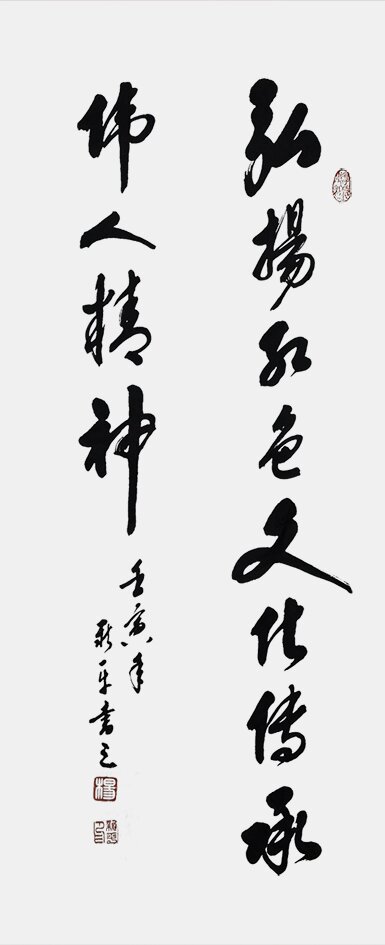 弘揚红色文化傳承
伟人精神
壬寅年
新平書之
楊